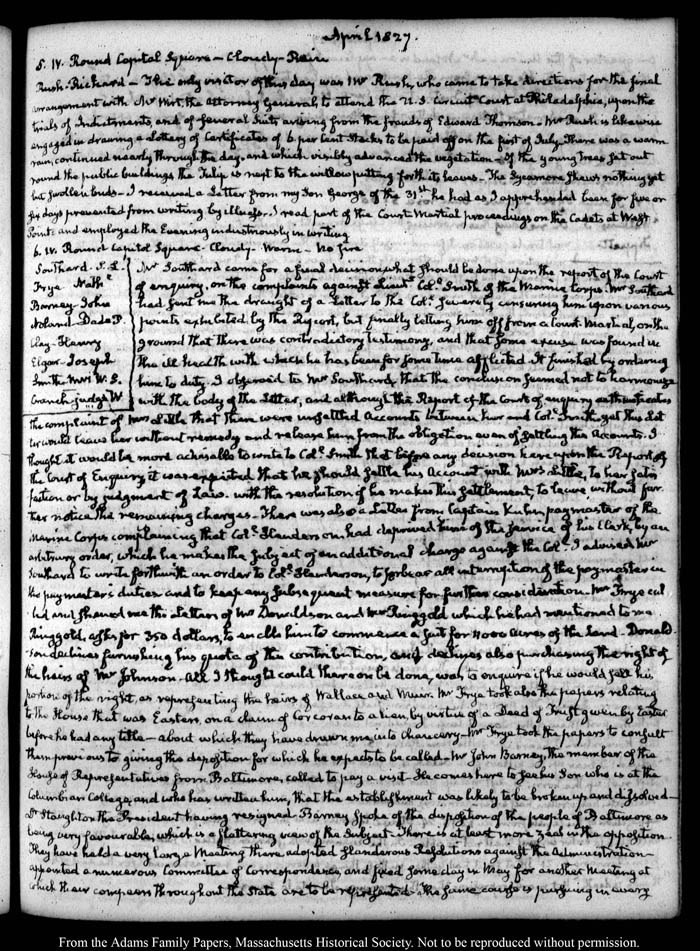 April 1827.
5. IV. Round Capitol Square — Cloudy — Rain
Rush. Richard — The only visitor of this day was Mr Rush, who came to take directions for the final
arrangement with Mr Wirt, the Attorney General, to attend the U.S. Circuit Court at Philadelphia, upon the
trials of Indictments, and of several Suits arising from the frauds of Edward Thomson. Mr Rush is likewise
engaged in drawing a Lottery of Certificates of 6 per Cent Stocks to be paid off on the first of July. There was a warm
rain, continued nearly through the day, and which visibly advanced the vegetation — Of the young trees set out
round the public buildings the Tulip is next to the willow putting forth its leaves — The Sycamore shews nothing yet
but swollen buds — I received a Letter from my Son George of the 31st he had as I apprehended been for five or
six days prevented from writing by illness. I read part of the Court Martial proceedings on the Cadets at West-
Point and employed the Evening industriously in writing
6. IV. Round Capitol Square. Cloudy. Warm — No fire
Southard. S. L.
Frye Nathl
Barney. John
Noland. Dade P.
Clay. Henry
Elgar. Joseph
Smith. Mrs W. S.
Cranch. judge W.
Mr Southard came for a final decision what should be done upon the report of the Court
of enquiry, on the complaints against Lieutt Coll Smith of the Marine Corps. Mr Southard
had sent me the draught of a Letter to the Coll severely censuring him upon various
points exhibited by the Report, but finally letting him off from a Court-Martial, on the
ground that there was contradictory testimony, and that some excuse was found in
the ill health with which he has been for some time afflicted. It finished by ordering
him to duty. I observed to Mr Southard, that the conclusion seemed not to harmonize
with the body of the Letter, and although the Report of the Court of enquiry authenticates
the complaint of Mrs Little that there were unsettled Accounts between her and Coll Smith, yet this Let
ter would leave her without remedy and release him from the obligation even of settling the Accounts. I
thought it would be more advisable to write to Coll Smith that before any decision here upon the Report of
the Court of Enquiry, it was expected that he should settle his Account, with Mrs Little, to her satis
faction or by judgment of Law. with the resolution if he makes this settlement, to leave without fur
ther notice the remaining charges. There was also a Letter from Captain Kuhn, paymaster of the
Marine Corps complaining that Coll Henderson had deprived him of the service of his Clerk, by an
arbitrary order, which he makes the subject of an additional charge against the Coll. I advised Mr
Southard to write forthwith an order to Coll Henderson, to forbear all interruption of the paymaster in
the paymaster's duties and to keep any subsequent measure for further consideration. Mr Frye cal
led and shewed me the Letters of Mr Donaldson and Mr Ringgold which he had mentioned to me
Ringgold, asks for 350 dollars, to enable him to commence a suit for 11000 acres of the land. Donald
son declines furnishing his quota of this contribution, and declines also purchasing the right of
the heirs of Mr Johnson. All I thought could thereon be done, was to enquire if he would sell his
portion of the right, as representing the heirs of Wallace and Muir. Mr Frye took also the papers relating
to the House that was Easters, on a claim of Corcoran to a lien, by virtue of a Deed of Trust given by Easter
before he had any title — about which they have drawn me into Chancery — Mr Frye took the papers to consult
them previous to giving the deposition for which he expects to be called — Mr John Barney, the member of the
House of Representatives from Baltimore, called to pay a visit — He comes here to see his Son who is at the
Columbian College, and who has written him, that the establishment was likely to be broken up and dissolved —
Dr Staughton the President having resigned. Barney spoke of the disposition of the people of Baltimore as
being very favourable, which is a flattering view of the subject. There is at least more zeal in the opposition.
They have held a very large Meeting there, adopted slanderous Resolutions against the Administration —
appointed a numerous Committee of Correspondence, and fixed some day in May for another Meeting at
which their compeers throughout the State are to be represented. The same course is pursuing in every
From the Adams Family Papers, Massachusetts Historical Society. Not to be reproduced without permission.